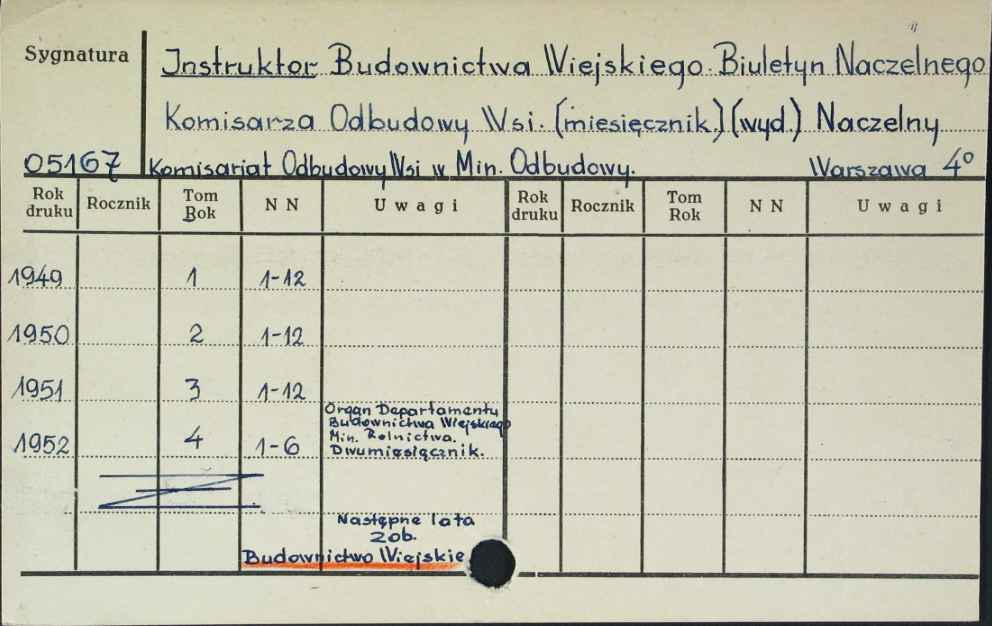 Sygnatura
Instruktor Budownictwa Wiejskiego. Biuletyn Naczelnego
Komisarza Odbudowy Wsi. (miesięcznik.) (wyd.) Naczelny
05167 Komisariat Odbudowy Wsi w Min. Odbudowy. Warszawa 4°
Rok druku Rocznik Tom Rok N N Uwagi Rok druku Rocznik Tom Rok N N Uwagi
1949 1 1-12
1950 2 1-12
1951 3 1-12
Organ Departamentu
Budownictwa Wiejskiego
Min. Rolnictwa.
1952 4 1-6 Dwumiesięcznik.
Następne lata
zob.
Budownictwo Wiejskie